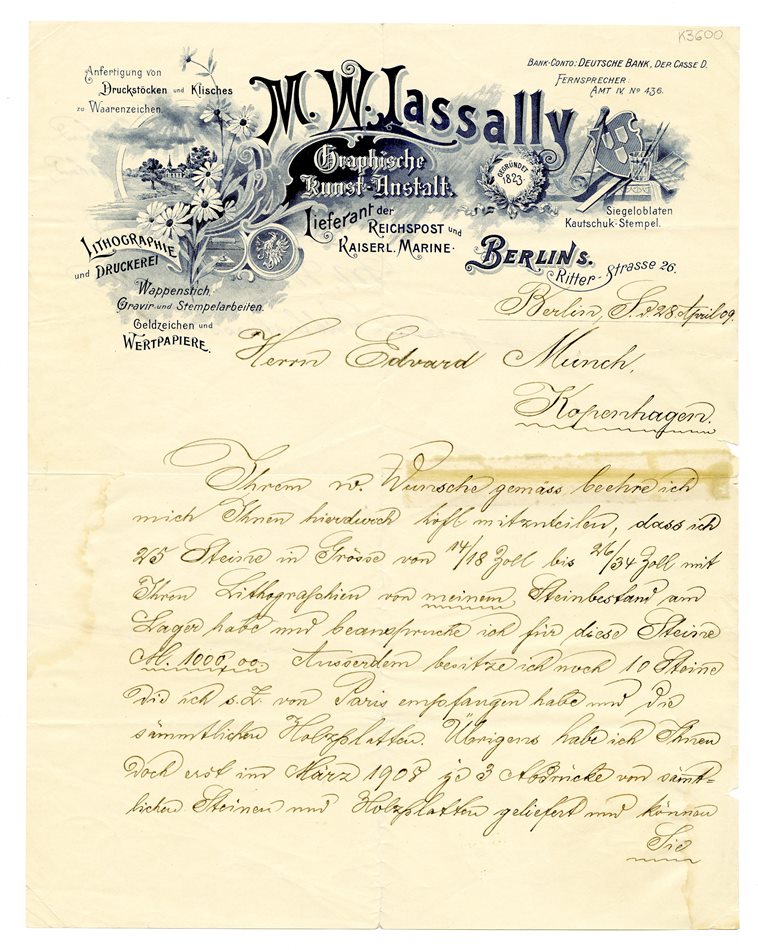 K3600
Anfertigung von
Druckstöcken und Klisches
zu Waarenzeichen.
M. W. Lassally
Graphische
Kunst-Anstalt.
Lieferant der
Reichspost und
Kaiserl. Marine.
GEGRÜNDET
1823
Bank-Conto: Deutsche Bank, Dep. Casse D.
Fernsprecher:
Amt IV. No 436.
Siegeloblaten
Kautschuk-Stempel.
Lithographie
und Druckerei
Wappenstich,
Gravir- und Stempelarbeiten.
Geldzeichen und
Wertpapiere.
Berlin S.
Ritter-Strasse 26.
Berlin S. d 28. April 09.
Herrn Edvard Munch,
Kopenhagen.
Ihrem w. Wunsche gemäss beehre ich
mich Ihnen hierdurch höfl mitzuteilen, dass ich
25 Steine in Grösse von 14/18 Zoll bis 26/34 Zoll mit
Ihren Lithographien von meinem Steinbestand am
Lager habe und beanspruche ich für diese Steine
M. 1000,00. Ausserdem besitze ich noch 10 Steine
die ich s. Z. von Paris empfangen habe und die
sämmtlichen Holzplatten. Übrigens habe ich Ihnen
doch erst im März 1908 je 3 Abdrücke von sämt-
lichen Steinen und Holzplatten geliefert und können
Sie